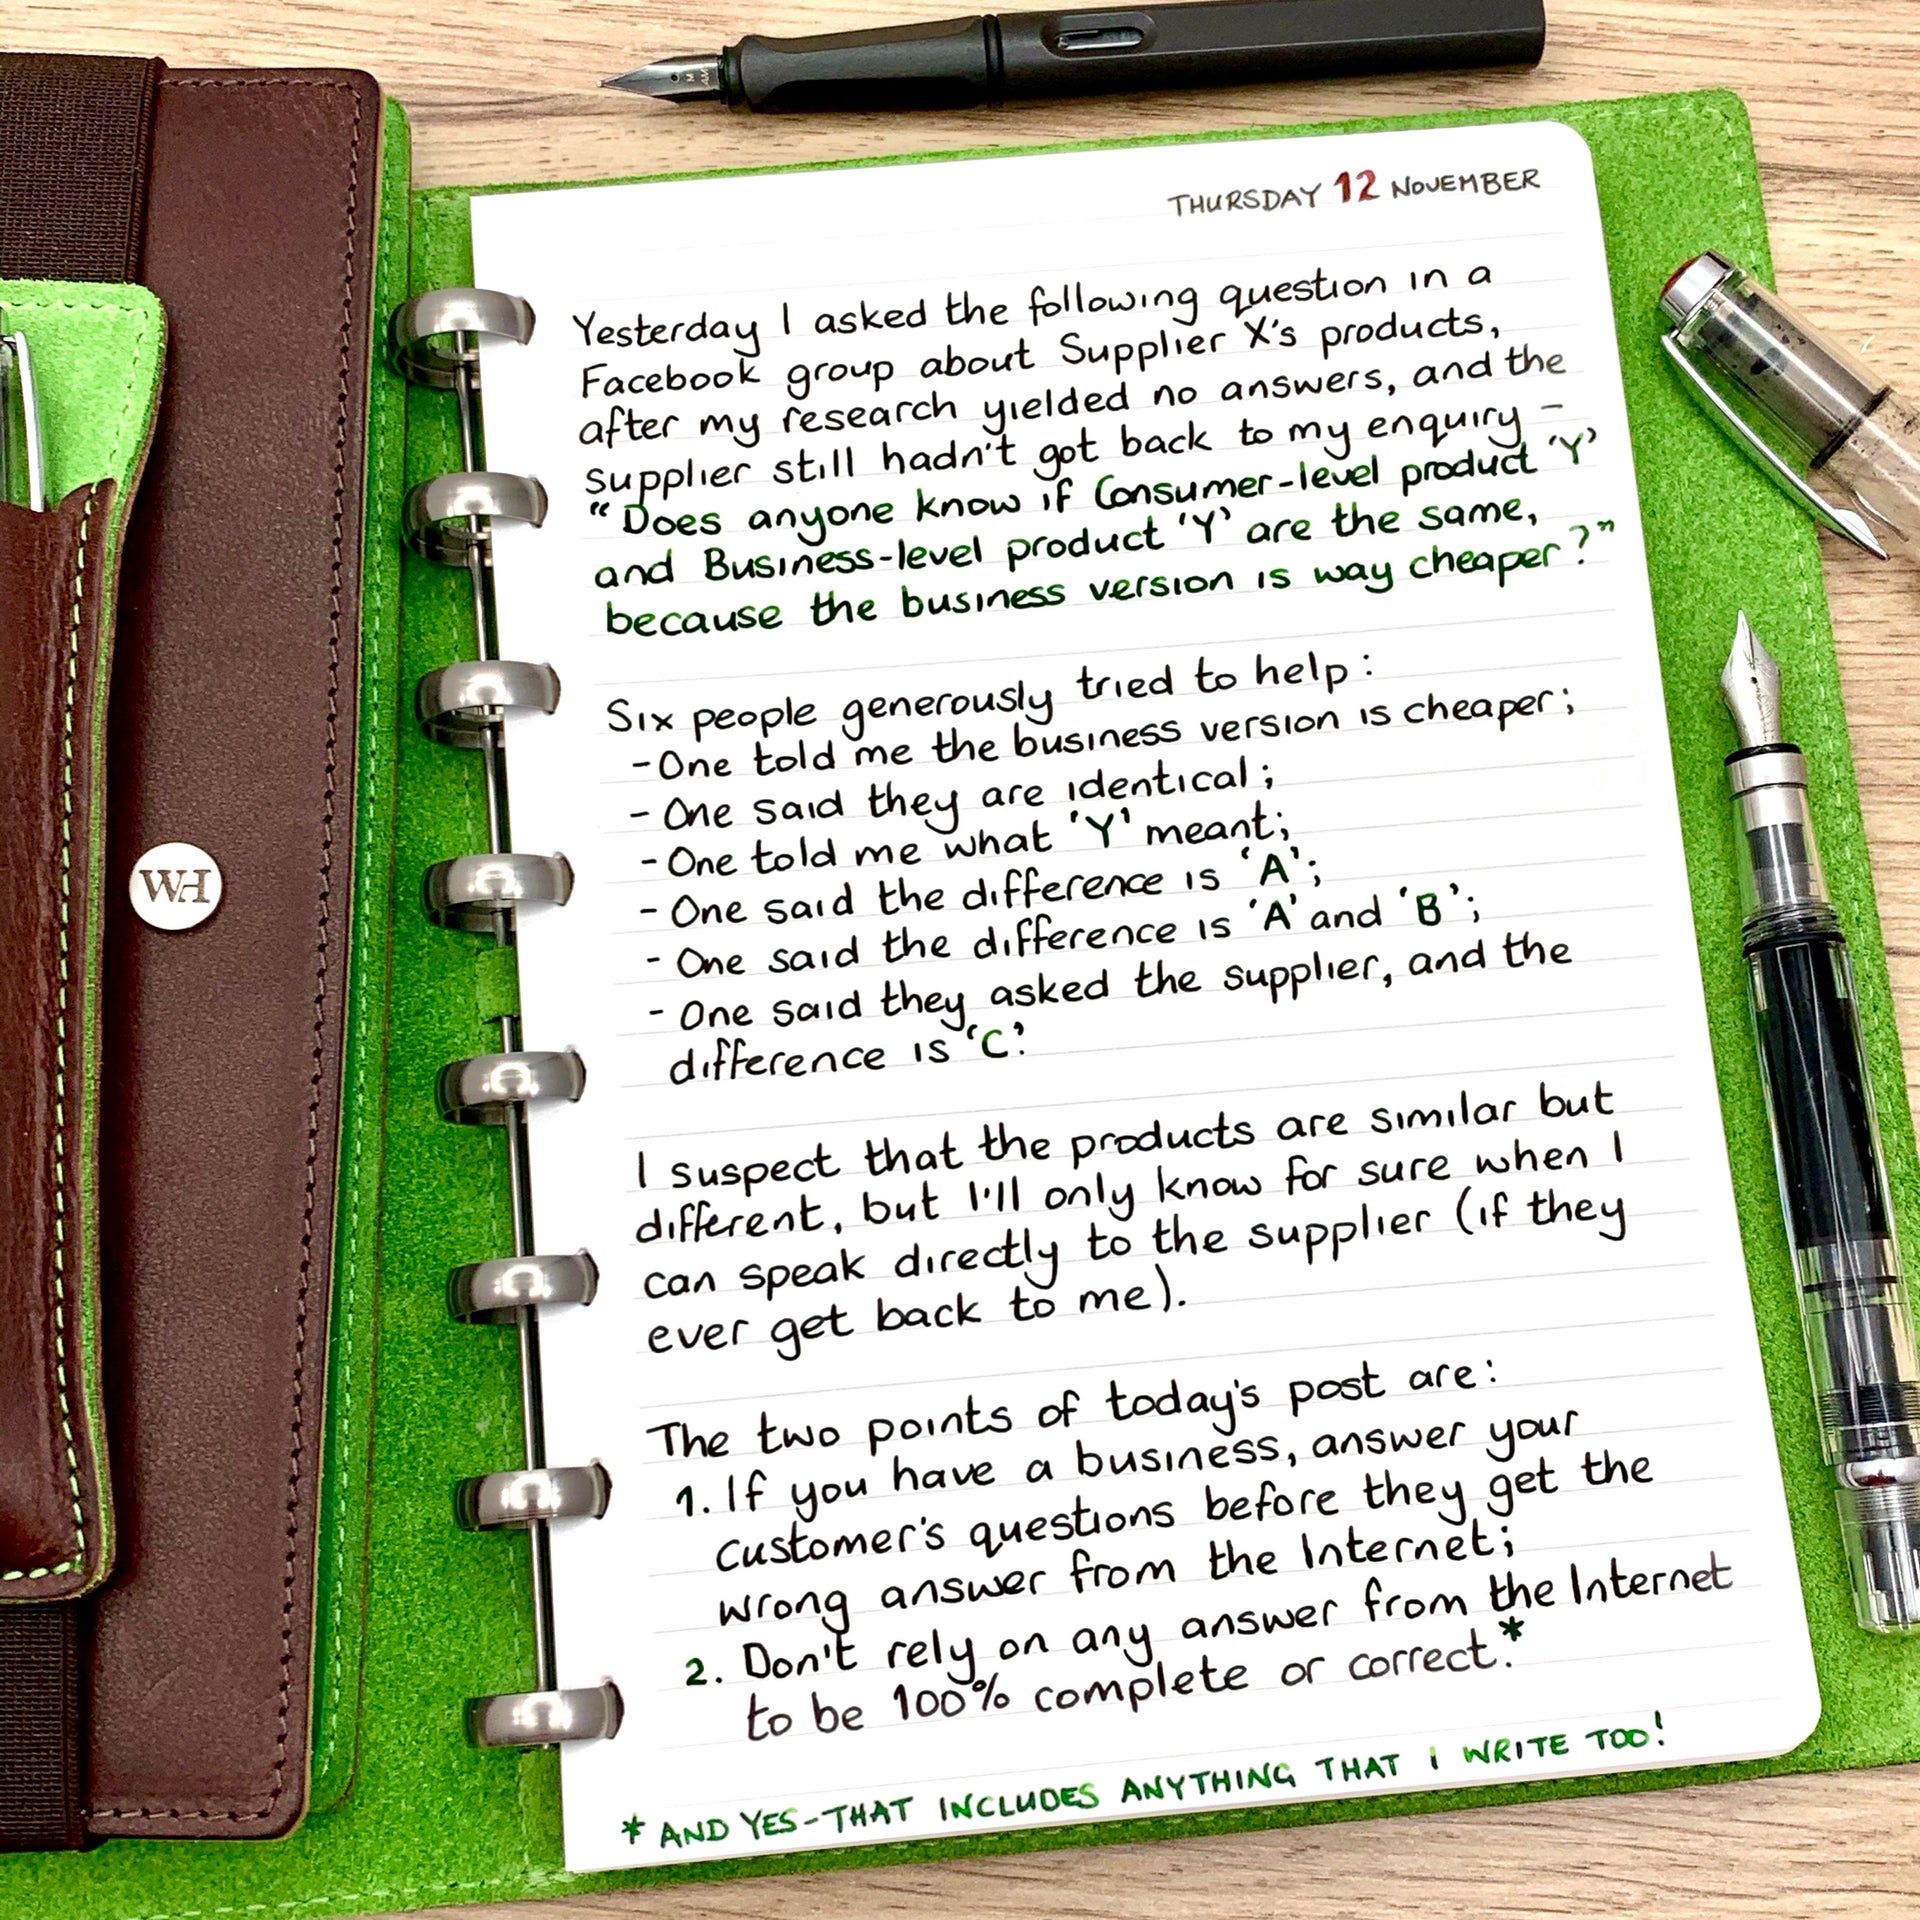 THURSDAY 12 NOVEMBER
Yesterday I asked the following question in a
Facebook group about Supplier X's products,
after my research yielded no answers, and the
supplier still hadn't got back to my enquiry –
"Does anyone know if Consumer-level product 'Y'
and Business-level product 'Y' are the same,
because the business version is way cheaper?"
Six people generously tried to help:
- One told me the business version is cheaper;
- One said they are identical;
- One told me what 'Y' meant;
- One said the difference is 'A';
- One said the difference is 'A' and 'B';
- One said they asked the supplier, and the
difference is 'C'.
I suspect that the products are similar but
different, but I'll only know for sure when I
can speak directly to the supplier (if they
ever get back to me).
The two points of today's post are:
1. If you have a business, answer your
customer's questions before they get the
wrong answer from the Internet;
2. Don't rely on any answer from the Internet
to be 100% complete or correct.*
* AND YES - THAT INCLUDES ANYTHING THAT I WRITE TOO!
WH